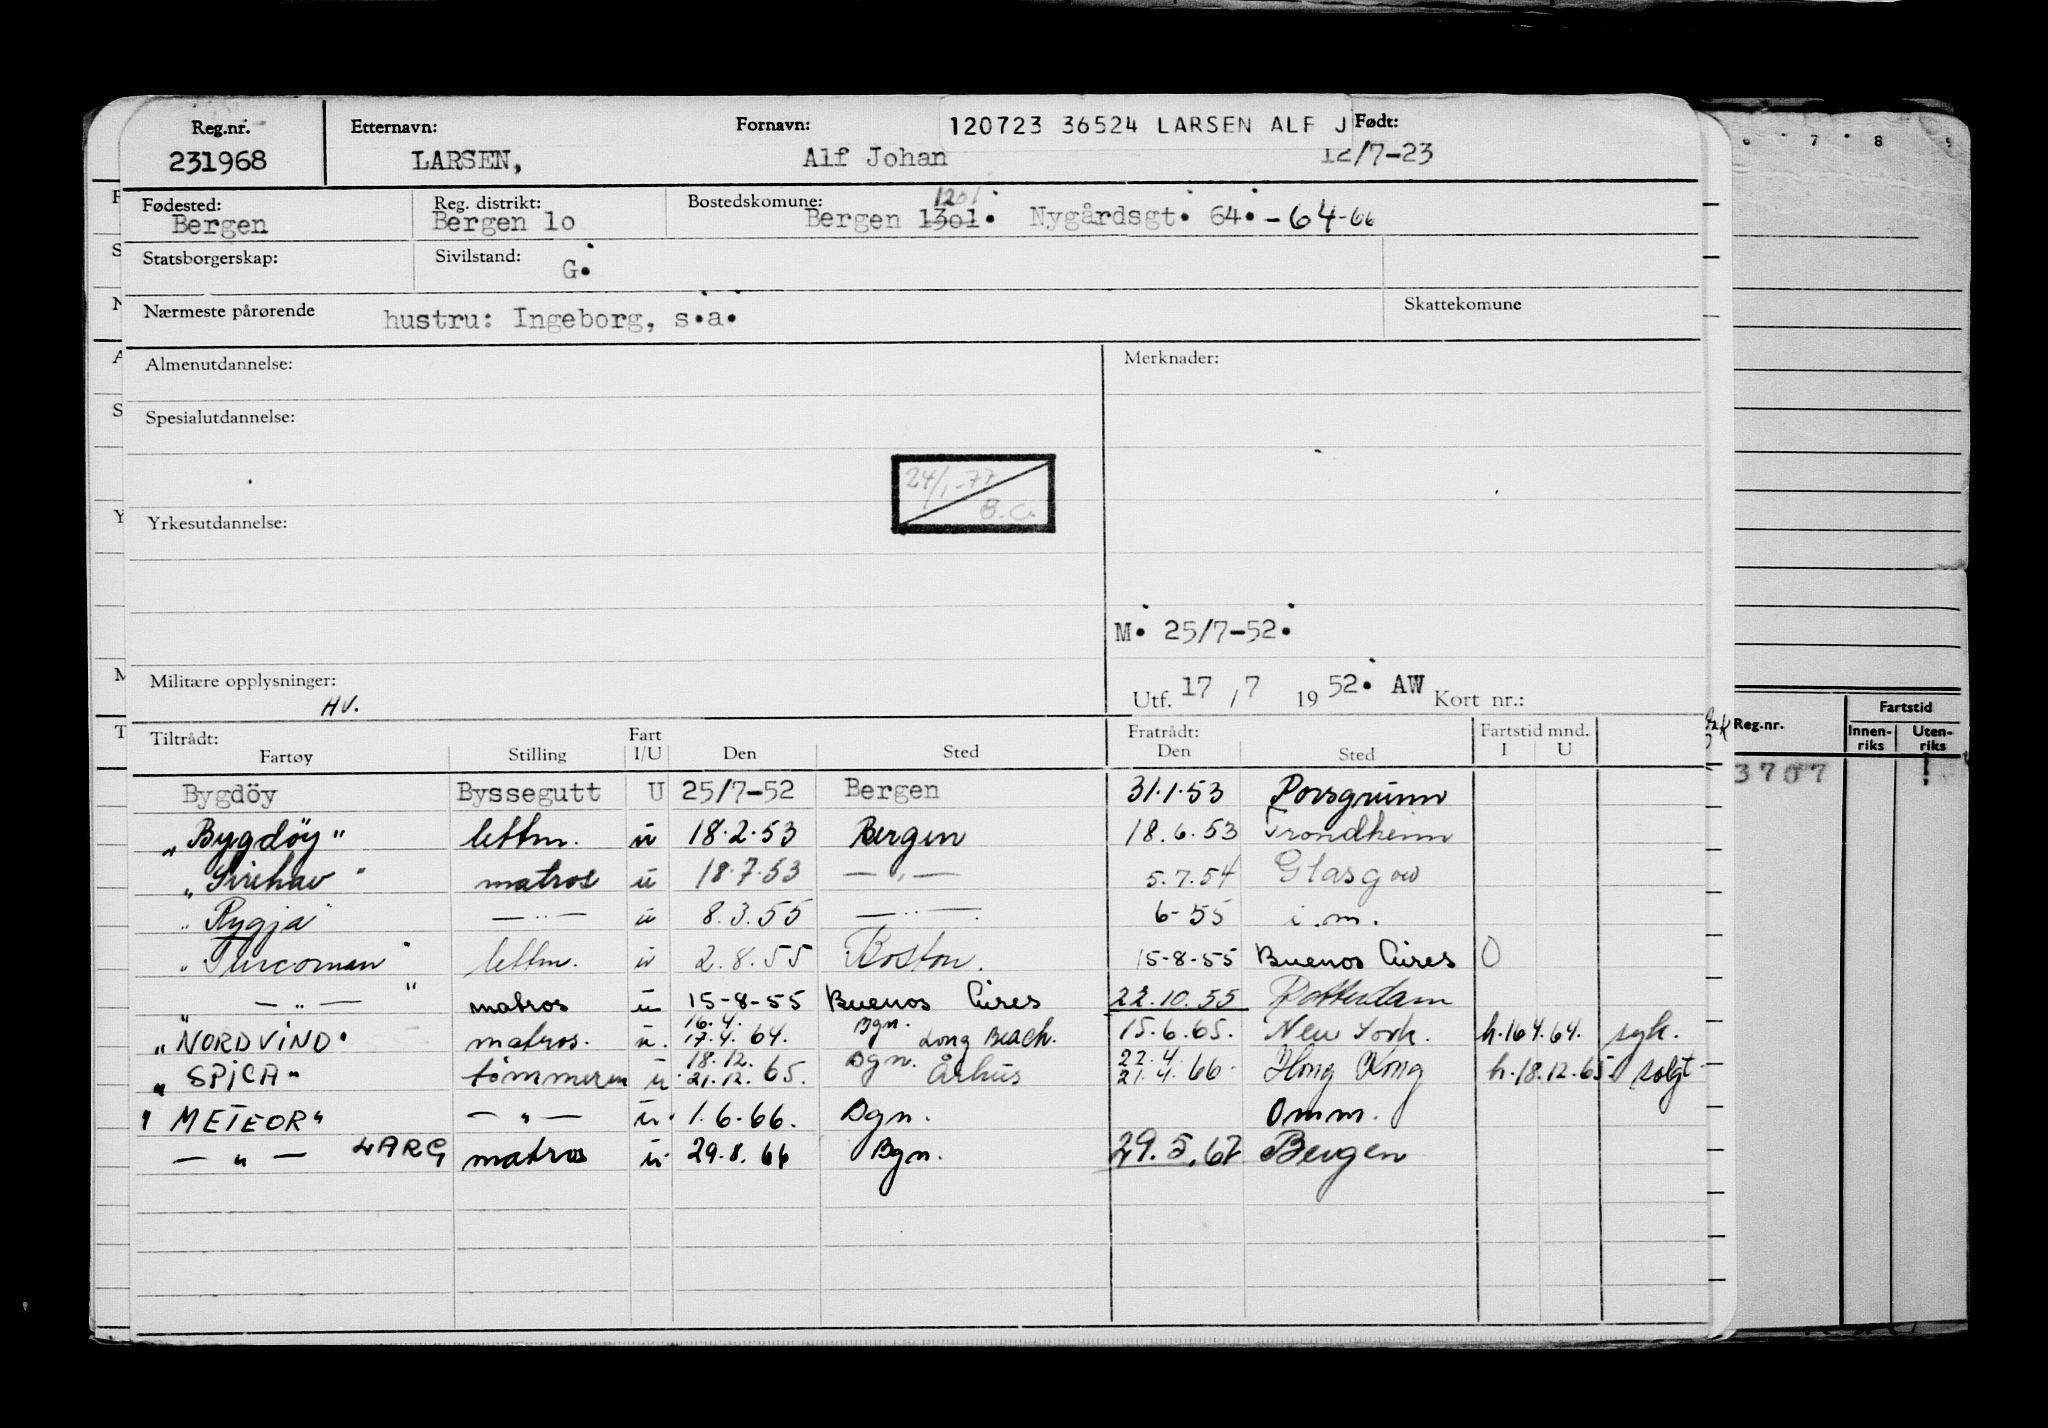 Reg.nr. Etternavn: Fornavn: 120723 36524 LARSEN ALF J Født:
231968 LARSEN, Alf Johan 12/7-23
Fødested: Reg. distrikt: Bostedskomune: 1201
Bergen Bergen 1o Bergen 13o1. Nygårdsgt. 64. -64-66
Statsborgerskap: Sivilstand: G.
Nærmeste pårørende hustru: Ingeborg, s.a. Skattekomune
Almenutdannelse: Merknader:
Spesialutdannelse:
24/1-77
B.C.
Yrkesutdannelse:
M. 25/7-52.
Militære opplysninger: HV.
Utf. 17 / 7 19 52. AW Kort nr.:
Tiltrådt: Fart Fratrådt: Fartstid mnd.
Fartøy Stilling I/U Den Sted Den Sted I U
Bygdöy Byssegutt U 25/7-52 Bergen 31.1.53 Porsgrunn
"Bygdöy" lettm. u 18.2.53 Bergen 18.6.53 Trondheim
"Sirehav" matros u 18.7.53 — " — 5.7.54 Glasgow
"Rygja" — " — u 8.3.55 — " — 6-55 i.m.
"Turcoman" lettm. u 2.8.55 Boston. 15-8-55 Buenos Aires O
" — " — " matros u 15-8-55 Buenos Aires 22.10.55 Rotterdam
"NORDVIND" matros. u. 16.4. 17.4.64. Bgn. Long Beach. 15.6.65. New York. h.16.4.64. syk.
"SPICA" tømmerm u. 18.12. 21.12.65. Bgn. Århus 22.4. 21.4.66. Hong Kong h.18.12.65. solgt
"METEOR" — " — u. 1.6.66. Bgn. Omm.
— " — LARG matros u. 29.8.66 Bgn. 29.5.67 Bergen
6 7 8 9
Reg.nr. Fartstid
Innen-riks Uten-riks
3707